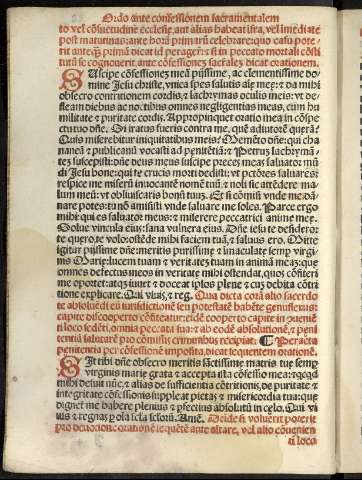 Ordo ante confessionem sacramentalem
to vel cōsuetudine ecclesie, aut alias habeat ista, vel imediate
post matutinas: ante horā primarū celebrare: quo casu pote
rit ante prima dicat id peragere: si in peccato mortali cōsti
tutū se cognouerit. ante cōfessionez sacralez dicat orationem.
Suscipe cōfessionez meā piissime, ac clementissime do
mine Jesu christe, vnica spes salutis aīe meę: & da mihi
obsecro contritionem cordis, & lachrymas oculis meis: vt de
fleam diebus ac noctibus omnes negligentias meas, cum hu
militate & puritate cordis. Appropinquet oratio mea in cōspe
ctu tuo dn̄e. Si iratus fueris contra me, quē adiutorē querā?
Quis miserebitur iniquitatibus meis? Memēto dn̄e: qui cha
naneā & publicanū vocasti ad penitētiā: & Petrū lachrymā
tez suscepisti: dn̄e deus meus suscipe preces meas saluator mū
di Jesu bone: qui te crucis morti dedisti: vt pctōres saluares:
respice me miserū inuocantē nomē tuū: & noli sic attēdere ma
lum meū: vt obliuiscaris bonū tuuz. Et si cōmisi vnde me dā
nare potes: tu nō amisisti vnde saluare me soles. Parce ergo
mihi qui es saluator meus: & miserere peccatrici anime meę.
Solue vincula eius: sana vulnera eius. Dn̄e iesu te desidero:
te quęro, te volo: ostēde mihi faciem tuā, & saluus ero. Mitte
igitur piissime dn̄e: meritis purissime & imaculate semp virgi
nis Marię: lucem tuam & veritatē tuam in animā meā: quę
omnes defectus meos in veritate mihi ostendat, quos cōfiteri
me oportet: atqz iuuet & doceat ipsos plene & cuz debita cōtri
tione explicare. Qui viuis, & reg. Qua dicta corā alio sacerdo
te absoluēdi eū iurisdictionē seu potestatē habēte genuflexus:
capite discooperto cōfiteatur: eodē cooperto capite
loco sedēti, omnia peccata sua: & ab eodē absolutionē, & peni
tentiā salutarē pro cōmissis criminibus recipiat. Peracta
penitentia per cōfessionē imposita, dicat sequentem orationē.
Sit tibi dn̄e obsecro meritis sāctissime matris tue semp
virginis marię grata & accepta ista cōfessio mea: & qcqd
mihi defuit nūc, & alias de sufficientia cōtritionis, de puritate &
integritate cōfessionis suppleat pietas & misericordia tua: que
dignet me habere plenius & pfectius absolutū in cęlo. Qui vi
uis & regnas p oīa scla sclorū. Amē. Deinde si voluerit poterit
pro deuotione orationē
ti loco